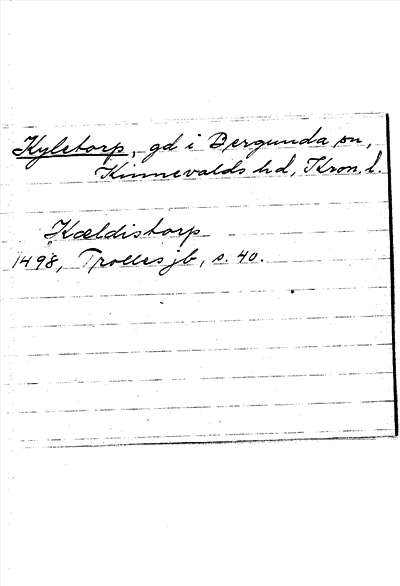 Kyletorp, gd i Bergunda sn,
Kinnevalds hd, Kron. l.
Kældistorp
1498, Trolles jb, s. 40.